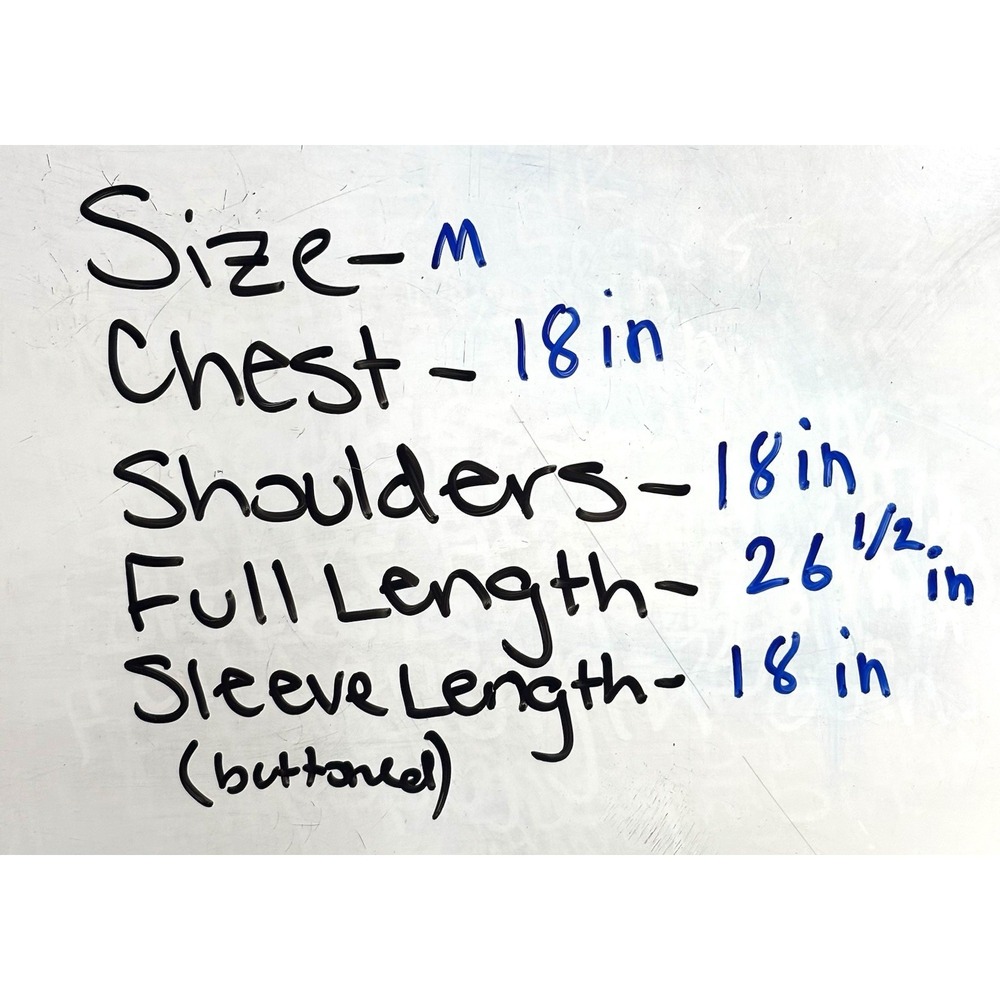 Size- M
Chest - 18 in
Shoulders- 18 in
Full Length- 26 1/2 in
Sleeve Length- 18 in
(buttoned)